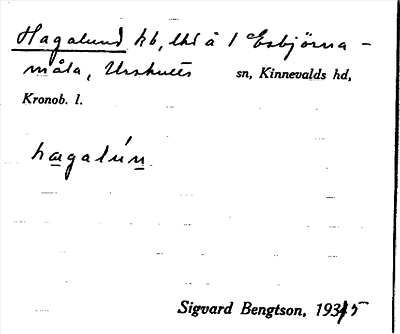 Hagalund hb, lht å 1 Esbjörna-
måla, Urshults sn, Kinnevalds hd,
Kronob. l.
hagalún
Sigvard Bengtson, 1935